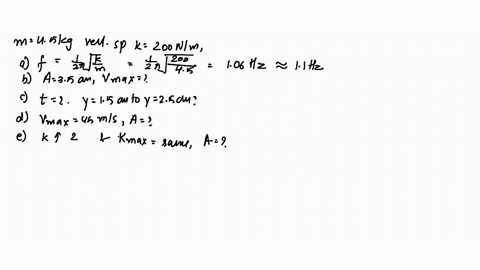 m=4.5kg vert. sp k=200N/m,
a) f = 1/2π √k/m = 1/2π √200/4.5 = 1.06 Hz ≈ 1.1Hz
b) A=3.5cm, Vmax=?
c) t=? y=1.5cm to y=2.5cm?
d) Vmax=45 m/s, A=?
e) k ↑ 2 & Kmax = same, A=?